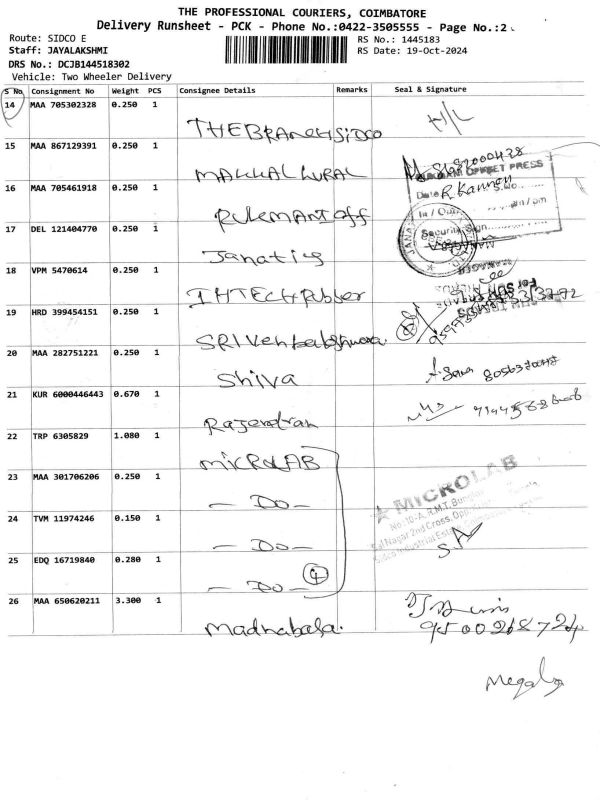 THE PROFESSIONAL COURIERS, COIMBATORE
Delivery Runsheet - PCK - Phone No.:0422-3505555 - Page No.:2
Route: SIDCO E
RS No.: 1445183
Staff: JAYALAKSHMI
RS Date: 19-Oct-2024
DRS No.: DCJB144518302
Vehicle: Two Wheeler Delivery
S No Consignment No Weight PCS Consignee Details Remarks Seal & Signature
14 MAA 705302328 0.250 1
THE BRANCH SIDCO
15 MAA 867129391 0.250 1
MAKKAL KURAL
16 MAA 705461918 0.250 1
OFFSET PRESS
Date R. Kannan
In / Out
Security Sign
17 DEL 121404770 0.250 1
Janatics
18 VPM 5470614 0.250 1
IHTECH Rubber
19 HRD 399454151 0.250 1
20 MAA 282751221 0.250 1
Shiva
21 KUR 6000446443 0.670 1
Rajendran
22 TRP 6305829 1.080 1
MICROLAB
23 MAA 301706206 0.250 1
- Do -
★ MICROLAB
No: 10-A, R.M.T.
Nagar 2nd Cross,
Sidco Industrial Estate
24 TVM 11974246 0.150 1
- Do -
25 EDQ 16719840 0.280 1
- Do - 4
26 MAA 650620211 3.300 1
Madhabala.
9500268724